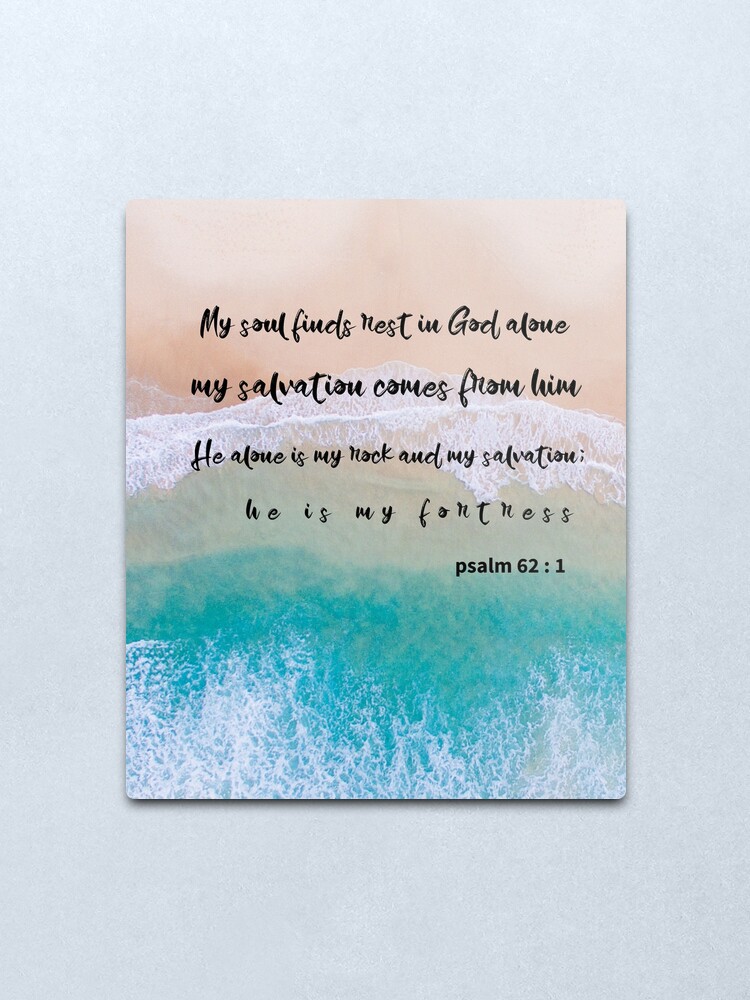 My soul finds rest in God alone
my salvation comes from him
He alone is my rock and my salvation;
he is my fortress
psalm 62 : 1